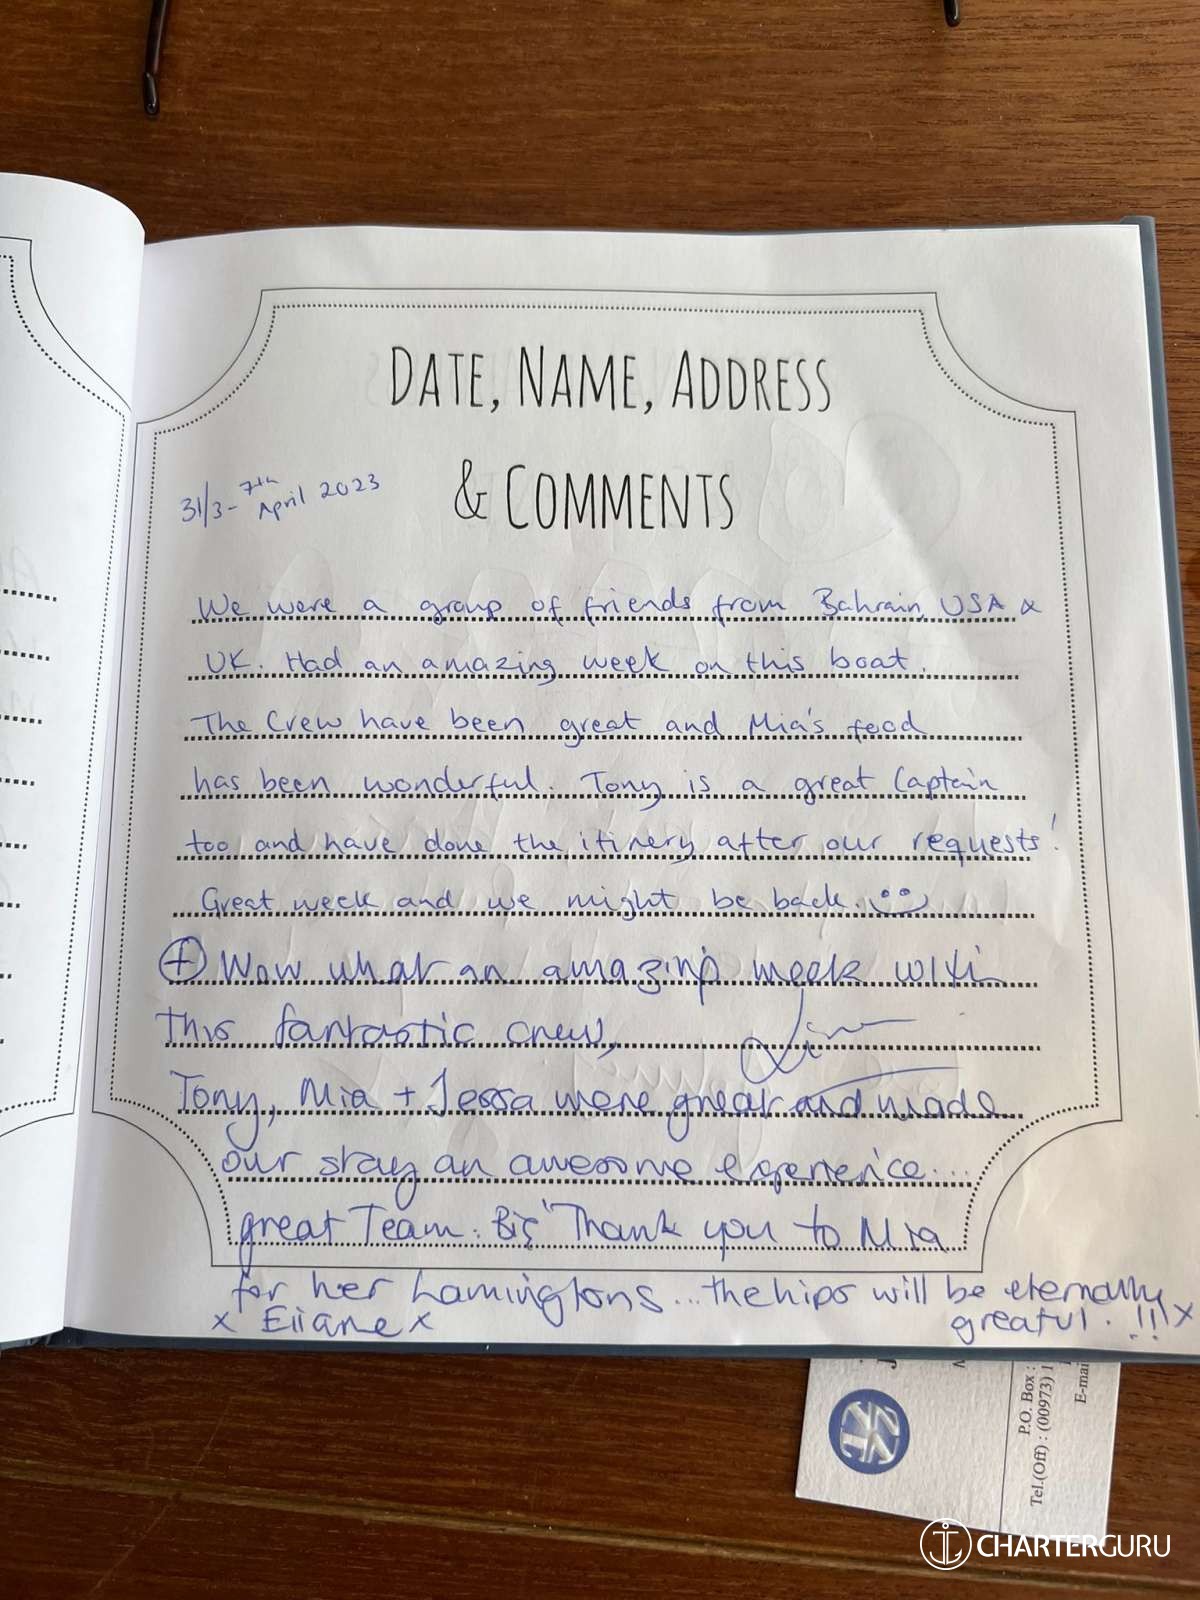 DATE, NAME, ADDRESS
& COMMENTS
31/3 - 7th April 2023
We were a group of friends from Bahrain, USA &
UK. Had an amazing week on this boat.
The Crew have been great and Mia's food
has been wonderful. Tony is a great Captain
too and have done the itinery after our requests!
Great week and we might be back.
+ Wow what an amazing week with
this fantastic crew,
Tony, Mia + Jessa were great and made
our stay an awesome experience....
great Team. Big Thank you to Mia
for her Lamingtons... the hips will be eternally
greatul. !!! x
x Eliane x
P.O. Box :
Tel.(Off) : (00973) 1
E-mai
CHARTERGURU